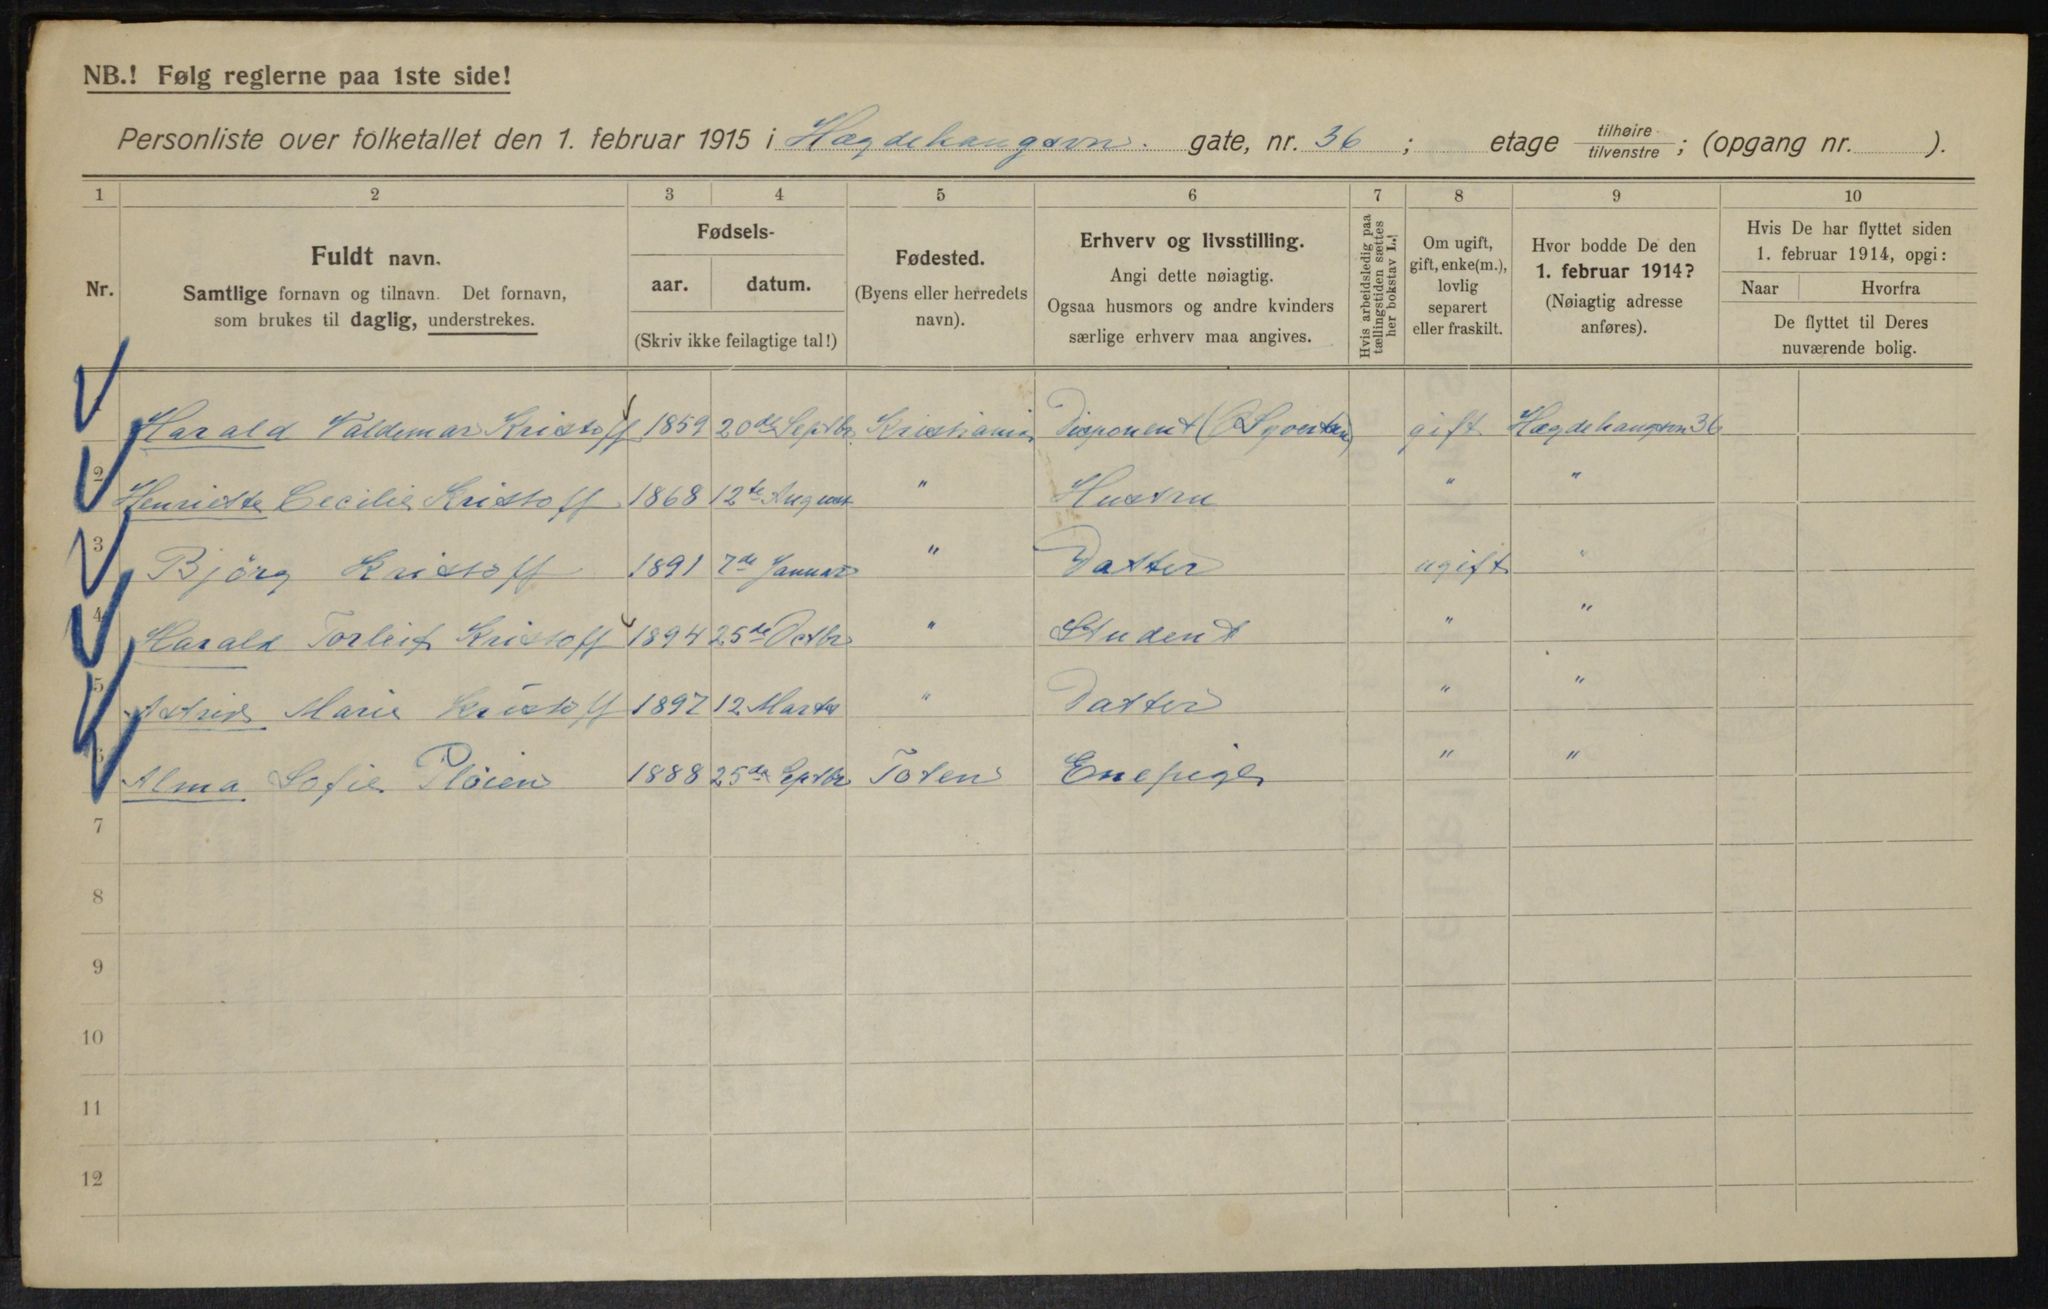 NB.! Følg reglerne paa 1ste side!
Personliste over folketallet den 1. februar 1915 i Hægdehaugsvn. gate, nr. 36 ; etage tilhøire tilvenstre ; (opgang nr. ).
1 2 3 4 5 6 7 8 9 10
Nr.
Fuldt navn.
Samtlige fornavn og tilnavn. Det fornavn,
som brukes til daglig, understrekes.
Fødsels-
aar. datum.
(Skriv ikke feilagtige tal!)
Fødested.
(Byens eller herredets
navn).
Erhverv og livsstilling.
Angi dette nøiagtig.
Ogsaa husmors og andre kvinders
særlige erhverv maa angives.
Hvis arbeidsledig paa
tællingstiden sættes
her bokstav L.!
Om ugift,
gift, enke(m.),
lovlig
separert
eller fraskilt.
Hvor bodde De den
1. februar 1914?
(Nøiagtig adresse
anføres).
Hvis De har flyttet siden
1. februar 1914, opgi:
Naar Hvorfra
De flyttet til Deres
nuværende bolig.
Harald Valdemar Kristoff 1859 20de Septbr Kristiania Disponent gift Hægdehaugsvn 36
2 Henriette Cecilie Kristoff 1868 12te August " Hustru " "
3 Bjørg Kristoff 1891 7de Januar " Datter ugift "
4 Harald Torleif Kristoff 1894 25de Octbr " Student " "
5 Astrid Marie Kristoff 1897 12 Marts " Datter " "
6 Alma Sofie Pløien 1888 25de Septbr Toten Enepige " "
7
8
9
10
11
12